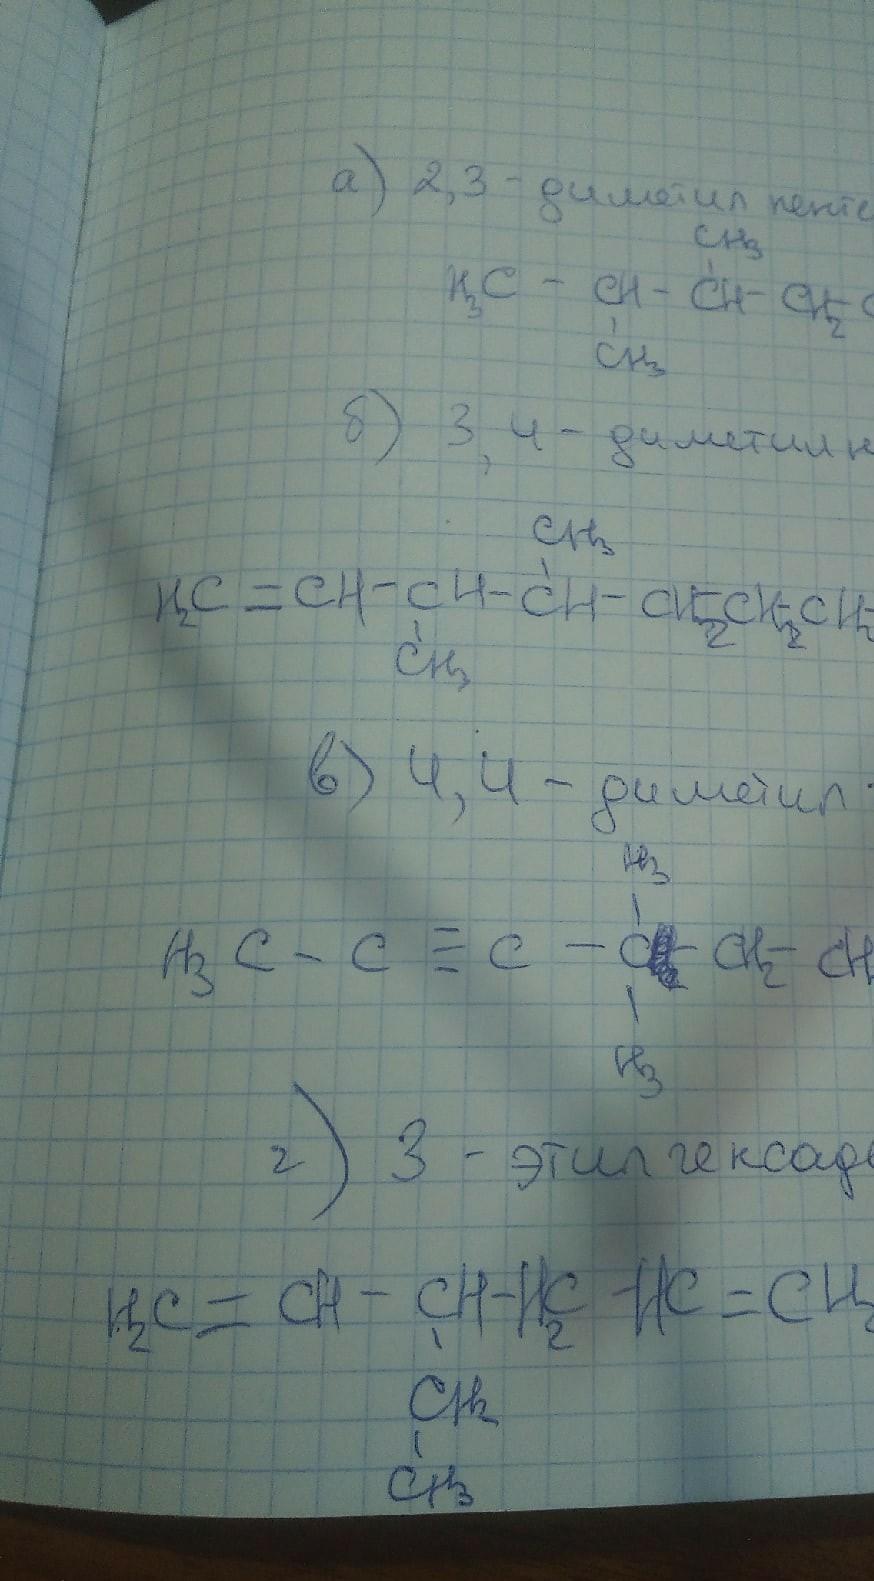 а) 2,3 - диметил пента
CH3
H3C - CH - CH - CH2 C
CH3
б) 3,4 - диметил н
CH3
H2C = CH - CH - CH - CH2 - CH2 - CH2
CH3
в) 4,4 - диметил
H3
H3 C - C ≡ C - C - CH2 - CH
H3
г) 3 - этил гексаде
H2C = CH - CH - H2C - HC = CH2
CH2
CH3